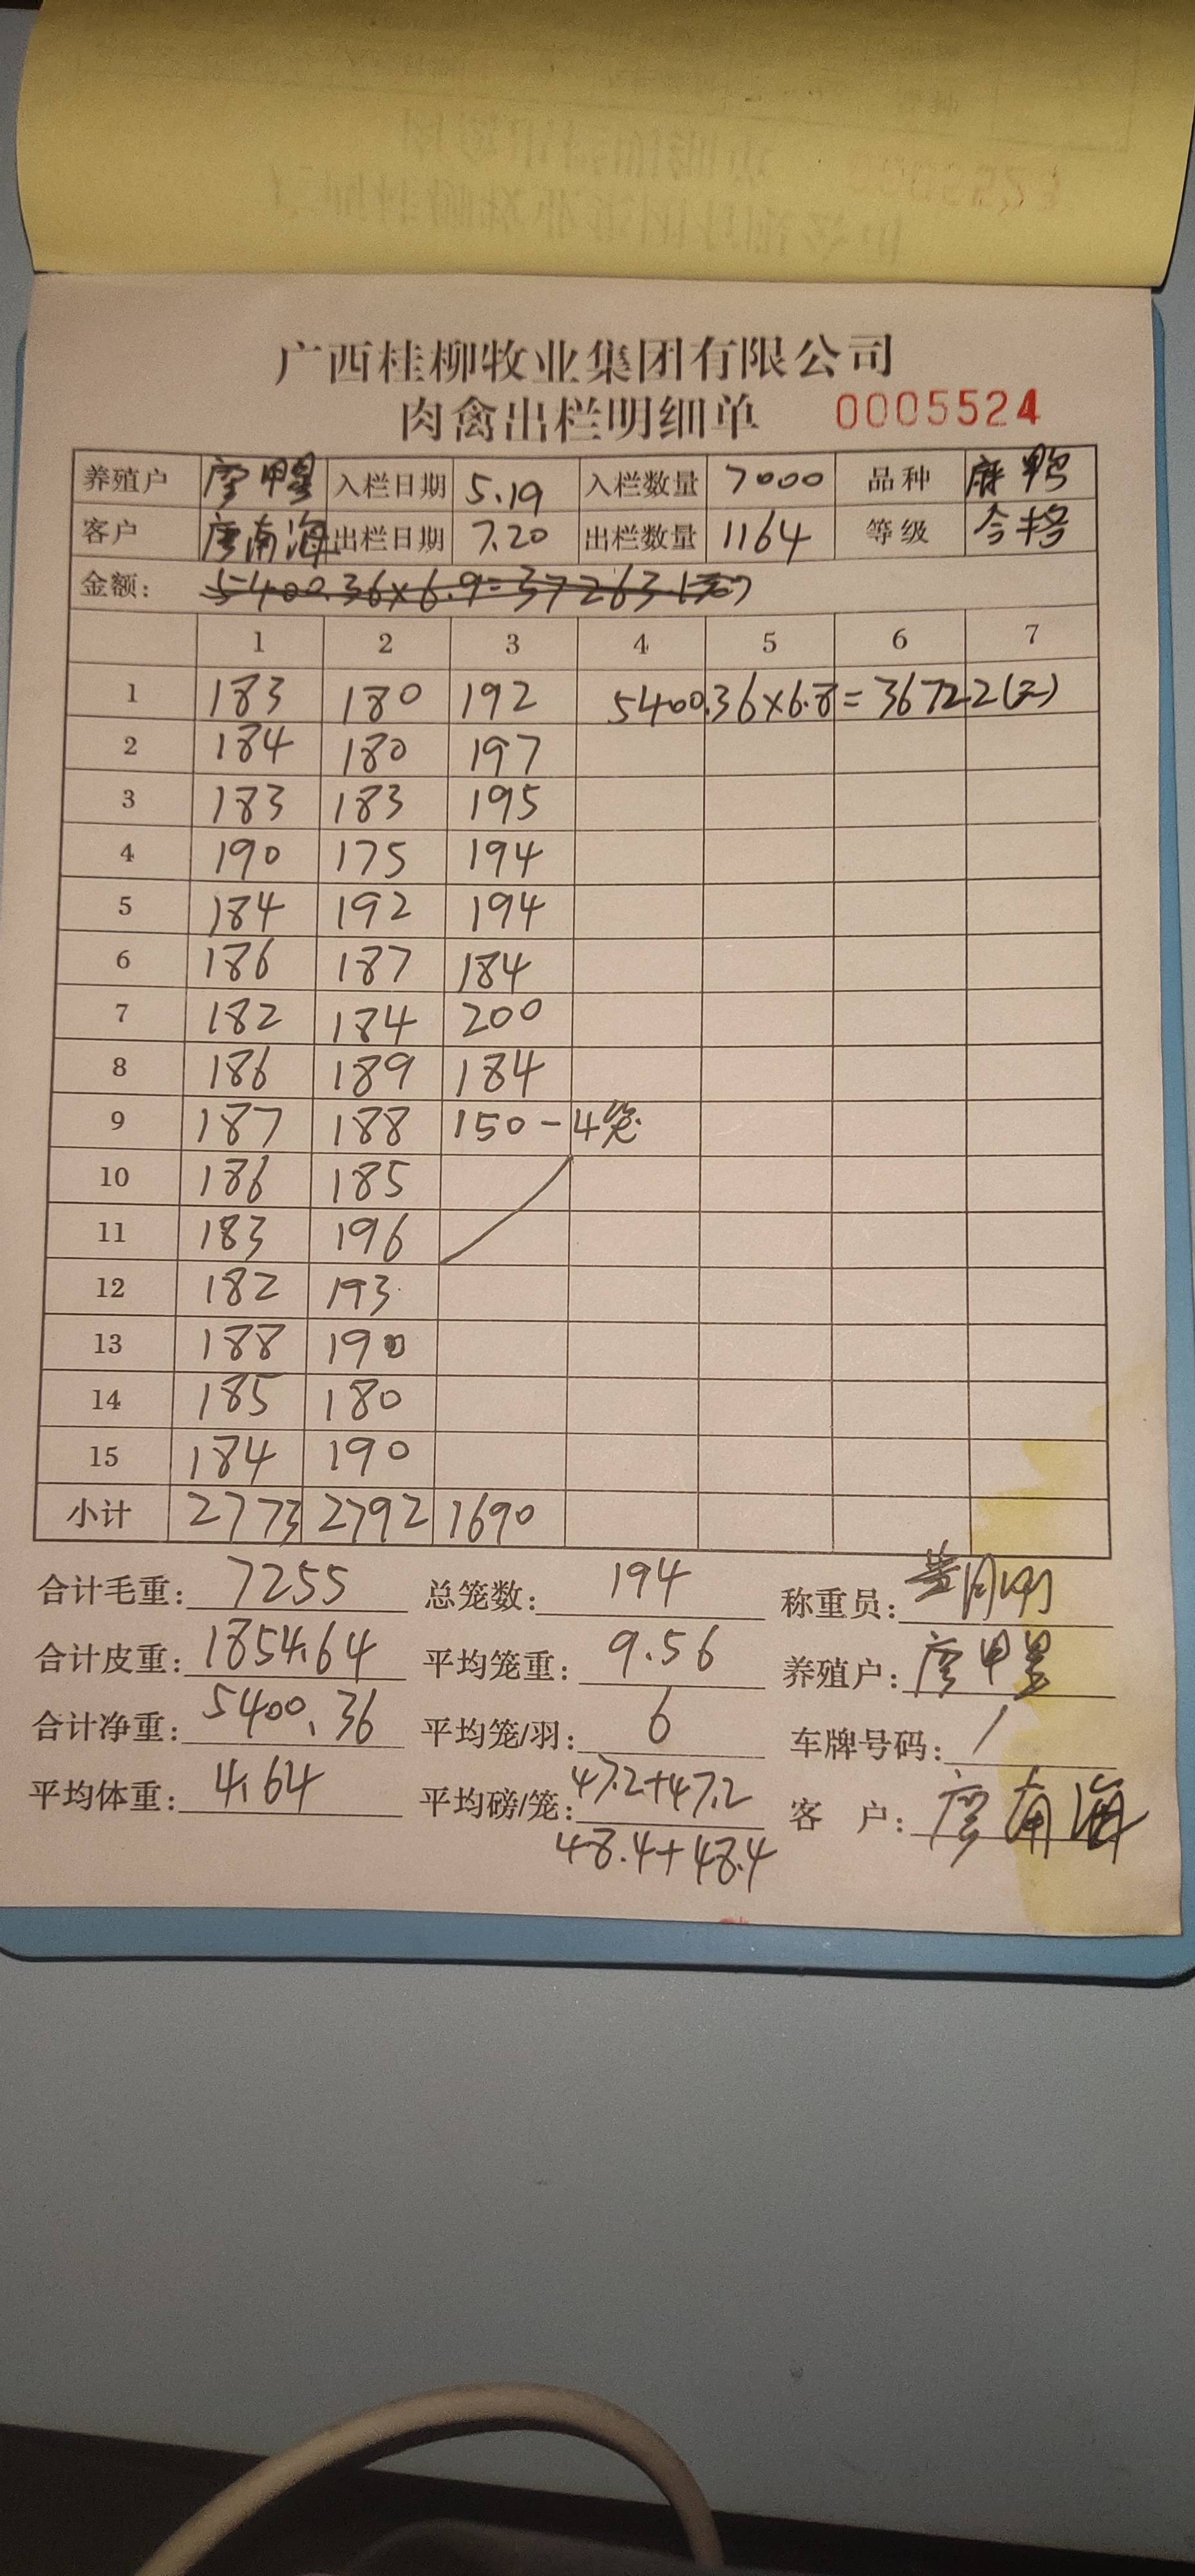 广西桂柳牧业集团有限公司
肉禽出栏明细单 0005524
养殖户 廖甲星 入栏日期 5.19 入栏数量 7000 品种 麻鸭
客户 廖南海 出栏日期 7.20 出栏数量 1164 等级 合格
金额: 5400.36×6.9=37263.1(元)
1 2 3 4 5 6 7
1 183 180 192 5400.36×6.8=36722(元)
2 184 180 197
3 183 183 195
4 190 175 194
5 184 192 194
6 186 187 184
7 182 184 200
8 186 189 184
9 187 188 150-4笼
10 186 185
11 183 196
12 182 193
13 188 190
14 185 180
15 184 190
小计 2773 2792 1690
合计毛重: 7255 总笼数: 194 称重员:
合计皮重: 1854.64 平均笼重: 9.56 养殖户: 廖甲星
合计净重: 5400.36 平均笼/羽: 6 车牌号码: /
平均体重: 4.64 平均磅/笼: 47.2+47.2 客户: 廖南海
48.4+48.4